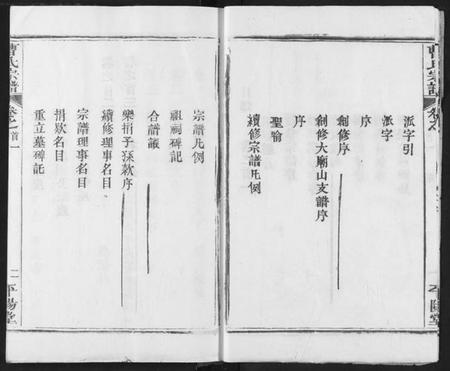 曹氏宗譜
派字引
派字
序
創修序
序
創修大廟山支譜序
聖諭
續修宗譜凡例
平陽堂
宗譜凡例
祖祠碑記
合譜議
樂捐子孫欵序
續修理事名目
宗譜理事名目
捐欵名目
重立墓碑記
曹氏宗譜
卷之首
一
二
平陽堂